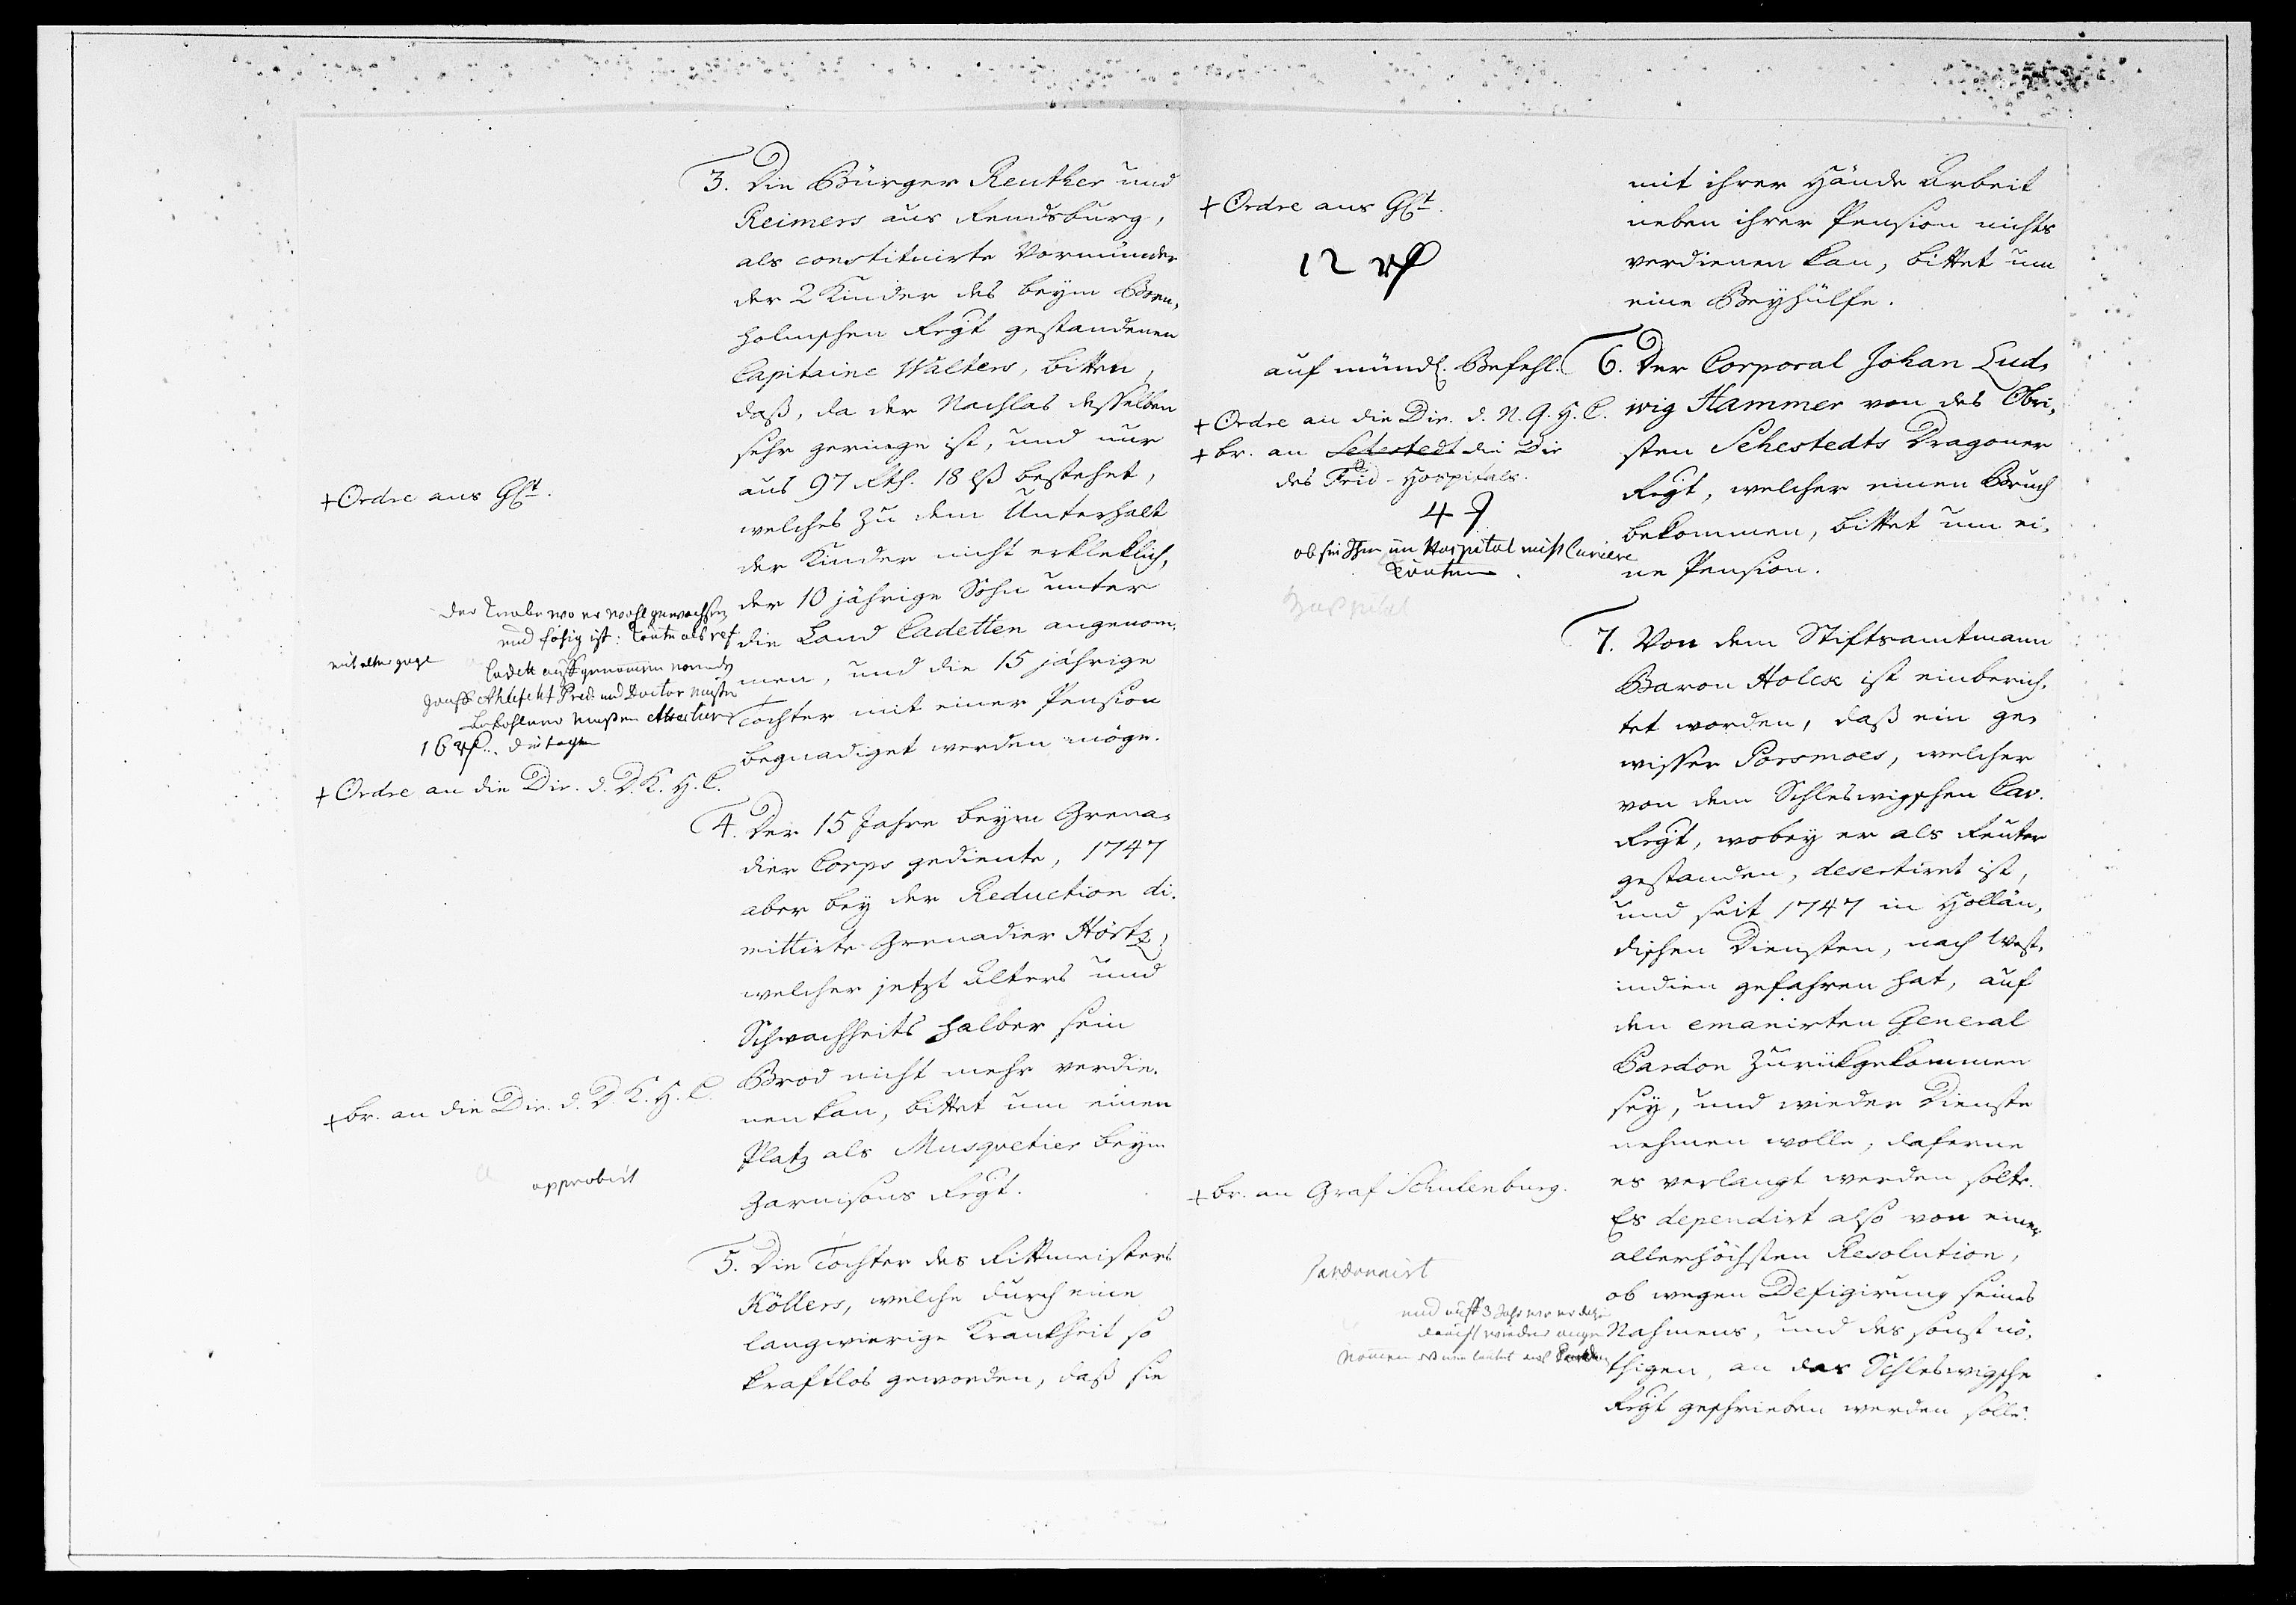 3. Die Bürger Reuther und
Reimers aus Rendsburg,
als constituirte Vormünder
der 2 Kinder des beym Born-
holmschen Regt gestandenen
Capitaine Walters, bitten,
daß, da der Nachlas desselben
sehr geringe ist, und nur
aus 97 Rth. 18 lß bestehet,
welches zu dem Unterhalt
der Kinder nicht erkleklich,
der 10 jährige Sohn unter
die Land Cadetten angenom-
men, und die 15 jährige
Tochter mit einer Pension
begnadiget werden möge.
+ Ordre ans GCt.
Der Knabe wo er wohl gewachsen
und fähig ist: könte als ref
Cadett
16 rf.
+ Ordre an die Dir. d. D. K. H. C.
4. Der 15 Jahre beym Grena-
dier Corps gediente, 1747
aber bey der Reduction di-
mittirte Grenadier Hörtz,
welcher jetzt Alters und
Schwachheits halber sein
Brod nicht mehr verdie-
nen kan, bittet um einen
Platz als Musquetier beym
Garnisons Regt.
+ br. an die Dir. d. D. K. H. C.
approbirt
5. Die Tochter des Rittmeisters
Köllers, welche durch eine
langwierige Krankheit so
kraftlos geworden, daß sie
mit ihrer Hände Arbeit
neben ihrer Pension nichts
verdienen kan, bittet um
eine Beyhülfe.
+ Ordre ans GCt.
12 rf
6. Der Corporal Johan Lud-
wig Hammer von des Obri-
sten Sehestedts Dragoner
Regt, welcher einen Bruch
bekommen, bittet um ei-
ne Pension.
auf mündl. Befehl.
+ Ordre an die Dir. d. N. Q. H. C.
+ br. an Sehestedt die Dir
des Frid- Hospitals.
4
ob sie Ihm im Hospital nicht Curiere
könten.
Hospital
7. Von dem Stiftsamtmann
Baron Holck ist einberich-
tet worden, daß ein ge-
wisser Porsmoes, welcher
von dem Schleswigschen Cav.
Regt, wobey er als Reuter
gestanden, desertiret ist,
und seit 1747 in Hollän-
dischen Diensten, nach West-
indien gefahren hat, auf
den emanirten General
Pardon zurükgekommen
sey, und wieder Dienste
nehmen wolle, daferne
es verlangt werden solte.
Es dependirt also von einer
allerhöchsten Resolution,
ob wegen Defigirung seines
Nahmens, und des sonst nö-
thigen, an das Schleswigsche
Regt geschrieben werden solle.
+ br. an Graf Schulenburg.
pardonnirt